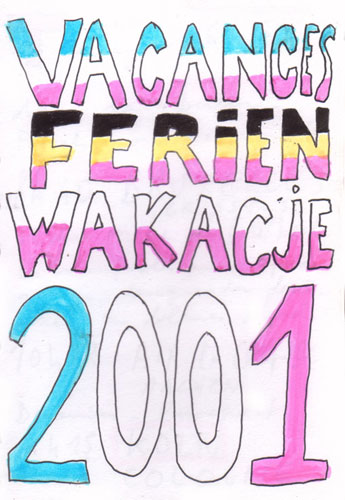 VACANCES
FERIEN
WAKACJE
2001